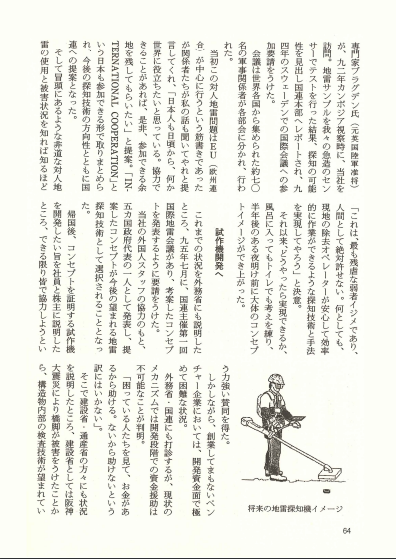 専門家プラグゲン氏（元英国陸軍准将）
が、九二年カンボジア視察時に、当社を
訪問。地雷サンプルを我々の急造のセン
サーでテストを行った結果、探知の可能
性を見出し国連本部へレポートされ、九
四年のスウェーデンでの国際会議への参
加要請をうけた。
会議は世界各国から集められた約七〇
名の軍事関係者が各部会に分かれ、行わ
れた。
当初この対人地雷問題はEU（欧州連
合）が中心に行うという筋書きであった
が関係者たちが私の話も聞いてやれと提
言してくれ、「日本人も日頃から、何か
世界に役立ちたいと思っている。協力で
きることがあれば、是非、参加できる余
地を残してもらいたい」と提案。「IN-
TERNATIONAL COOPERATION」と
いう日本も参加できる形で取りまとめら
れ、今後の探知技術の方向性とともに国
連への提案となった。
そして冒頭にあるような非道な対人地
雷の使用と被害状況を知れば知るほど
「これは〝最も残虐な弱者イジメ〟であり、
人間として絶対許せない。何としても、
現地の除去オペレーターが安心して効率
的に作業ができるような探知技術と手法
を実現してやろう」と決意。
それ以来、どうやったら実現できるか、
風呂に入ってもトイレでも考えを練り、
半年後のある夜明け前に大体のコンセプ
トイメージができ上がった。
試作機開発へ
これまでの状況を外務省にも説明した
ところ、九五年七月に、国連主催第一回
国際地雷会議があり、考案したコンセプ
トを発表するように要請をうけた。
当社の外国人スタッフの協力のもと、
五カ国政府代表の一人として発表し、提
案したコンセプトが今後の望まれる地雷
探知技術として選択されることとなっ
た。
帰国後、コンセプトを証明する試作機
を開発したい旨を社員と株主に説明した
ところ、できる限り皆で協力しようとい
う力強い賛同を得た。
しかしながら、創業してまもないベン
チャー企業においては、開発資金面で極
めて困難な状況。
外務省・国連にも打診するが、現状の
メカニズムでは開発段階での資金援助は
不可能なことが判明。
「困っている人たちを見て、お金があ
るから助ける。ないから助けないという
訳にはいかない」。
そこで建設省・通産省の方々にも状況
を説明したところ、建設省としては阪神
大震災により橋脚が被害をうけたことか
ら、構造物内部の検査技術が望まれてい
将来の地雷探知機イメージ
64